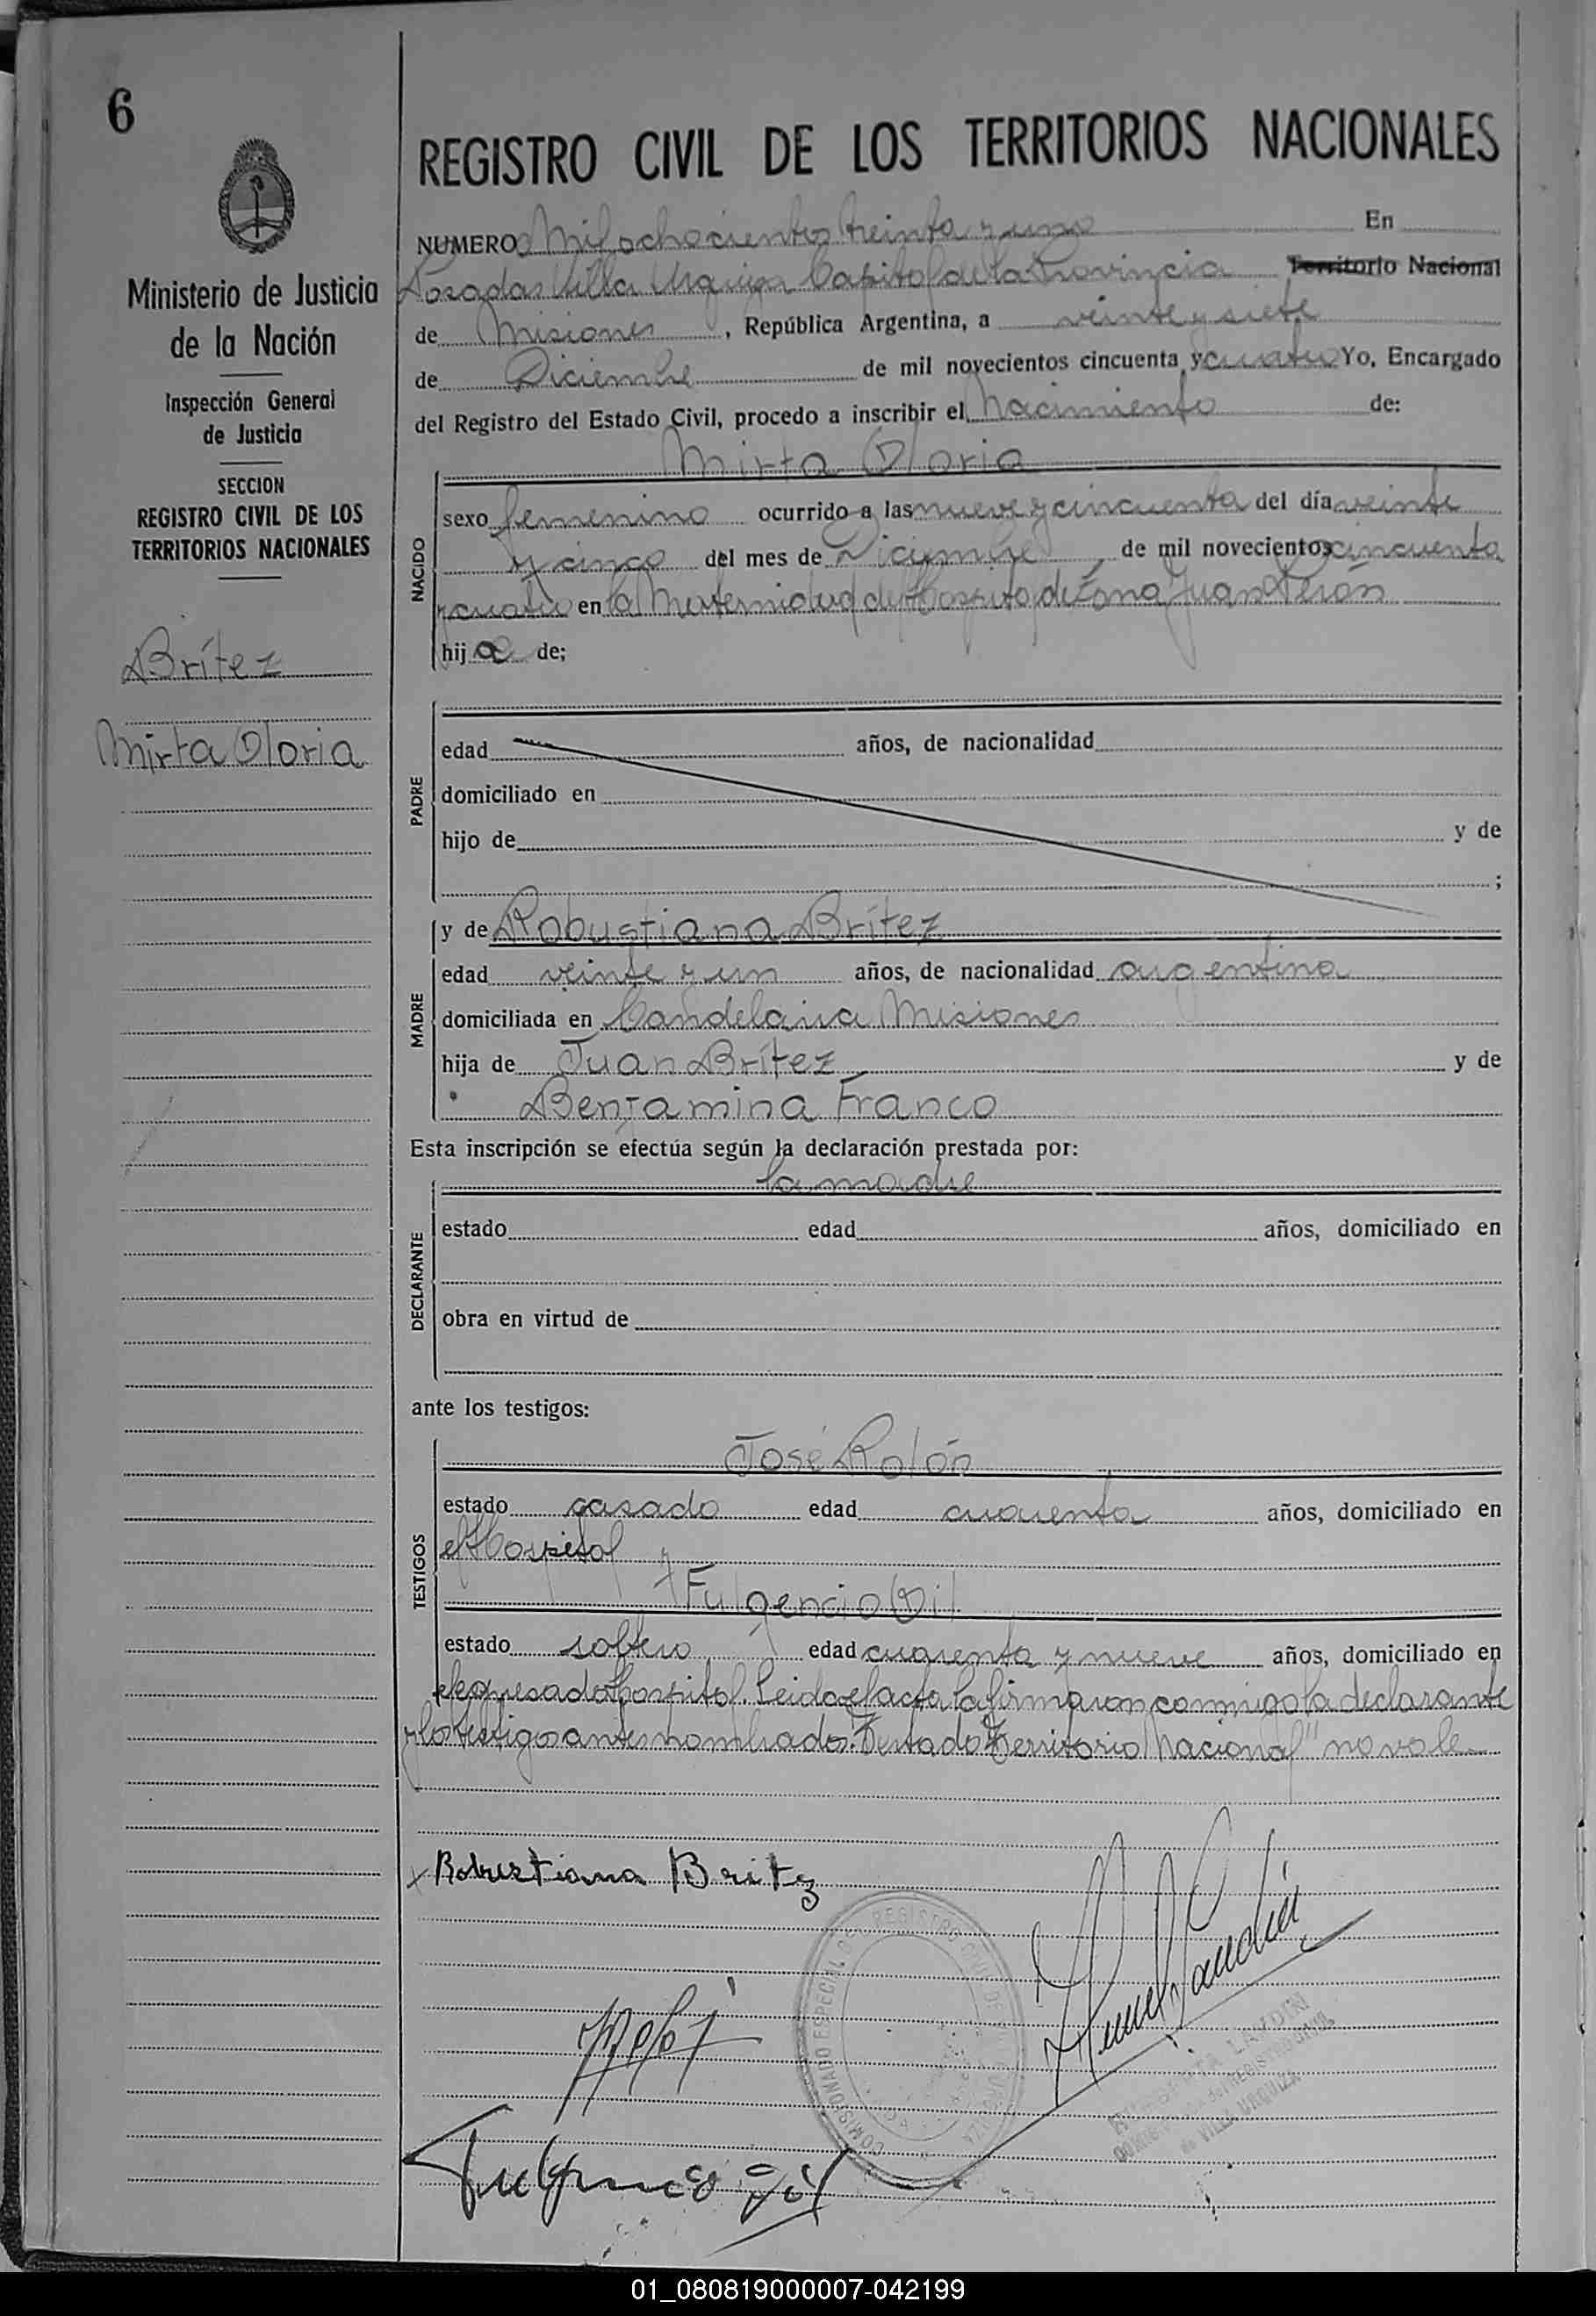 6
REGISTRO CIVIL DE LOS TERRITORIOS NACIONALES
Ministerio de Justicia
de la Nación
Inspección General
de Justicia
SECCION
REGISTRO CIVIL DE LOS
TERRITORIOS NACIONALES
Brítez
Mirta Gloria
NUMERO Mil ochocientos treinta y uno En
Posadas Villa Urquiza Capital de la Provincia Territorio Nacional
de Misiones, República Argentina, a veinte y siete
de Diciembre de mil novecientos cincuenta y cuatro Yo, Encargado
del Registro del Estado Civil, procedo a inscribir el Nacimiento de:
Mirta Gloria
NACIDO
sexo femenino ocurrido a las nueve y cincuenta del día veinte
y cinco del mes de Diciembre de mil novecientos cincuenta
y cuatro en la Maternidad del Hospital de Zona Juan Perón
hija de;
PADRE
edad años, de nacionalidad
domiciliado en
hijo de y de
;
y de Robustiana Brítez
MADRE
edad veinte y un años, de nacionalidad argentina
domiciliada en Candelaria Misiones
hija de Juan Brítez y de
Benjamina Franco
Esta inscripción se efectúa según la declaración prestada por:
la madre
DECLARANTE
estado edad años, domiciliado en
obra en virtud de
ante los testigos:
José Rolón
TESTIGOS
estado casado edad cuarenta años, domiciliado en
el Hospital y
Fulgencio Gil
estado soltero edad cuarenta y nueve años, domiciliado en
el expresado Hospital. Leida el acta la firmaron conmigo la declarante
y los testigos antes nombrados. Testado "Territorio Nacional" no vale.
x Robustiana Britz
COMISIONADO ESPECIAL DEL REGISTRO CIVIL DE VILLA URQUIZA
LANDIN
del REGISTRO CIVIL
de VILLA URQUIZA
Fulgencio Gil
01_080819000007-042199